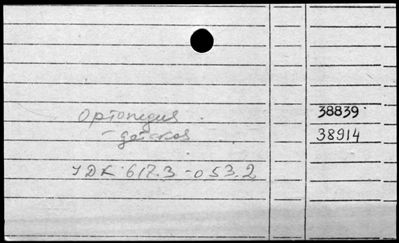 Ортопедия
38839
- детская
38914
УДК 617.3-053.2